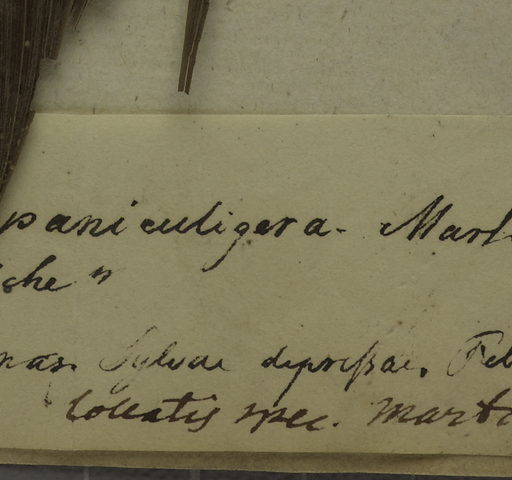 paniculigera. Mart
che"
nas. Sylvae depressae. Feb
spec. Marti